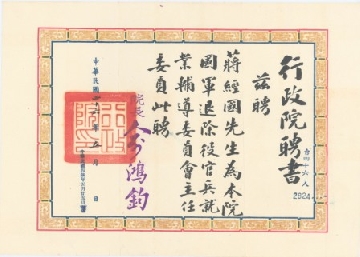 行政院聘書
茲聘
蔣經國先生為本院
國軍退除役官兵就
業輔導委員會主任
委員此聘
院長 俞鴻鈞
中華民國
年 月 日
2924